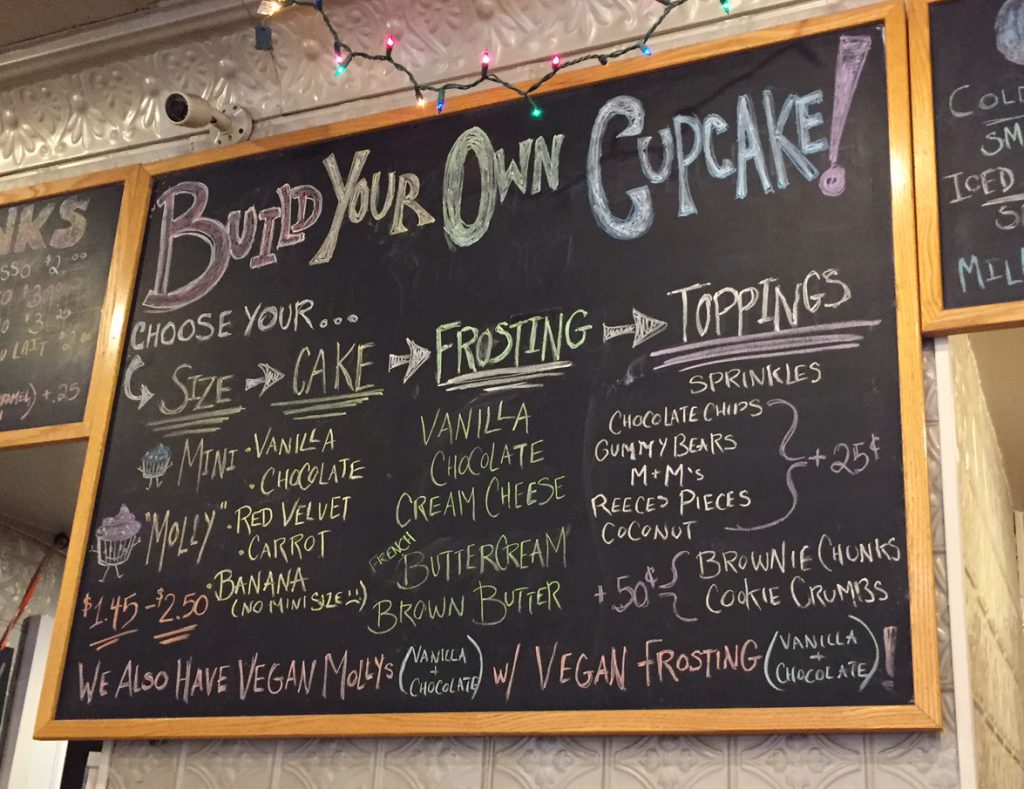 BUILD YOUR OWN CUPCAKE!
CHOOSE YOUR...
SIZE
MINI
"MOLLY"
$1.45 - $2.50
CAKE
• VANILLA
• CHOCOLATE
• RED VELVET
• CARROT
• BANANA
(NO MINI SIZE :-()
FROSTING
VANILLA
CHOCOLATE
CREAM CHEESE
FRENCH BUTTERCREAM
BROWN BUTTER
TOPPINGS
SPRINKLES
CHOCOLATE CHIPS
GUMMY BEARS
M+M's
REECES PIECES
COCONUT
+ 25¢
BROWNIE CHUNKS
COOKIE CRUMBS
+ 50¢
WE ALSO HAVE VEGAN MOLLYS (VANILLA + CHOCOLATE) w/ VEGAN FROSTING (VANILLA + CHOCOLATE)!
NKS
SSO $2.00
LAIT
+.25
COL
SM
ICED
MIL